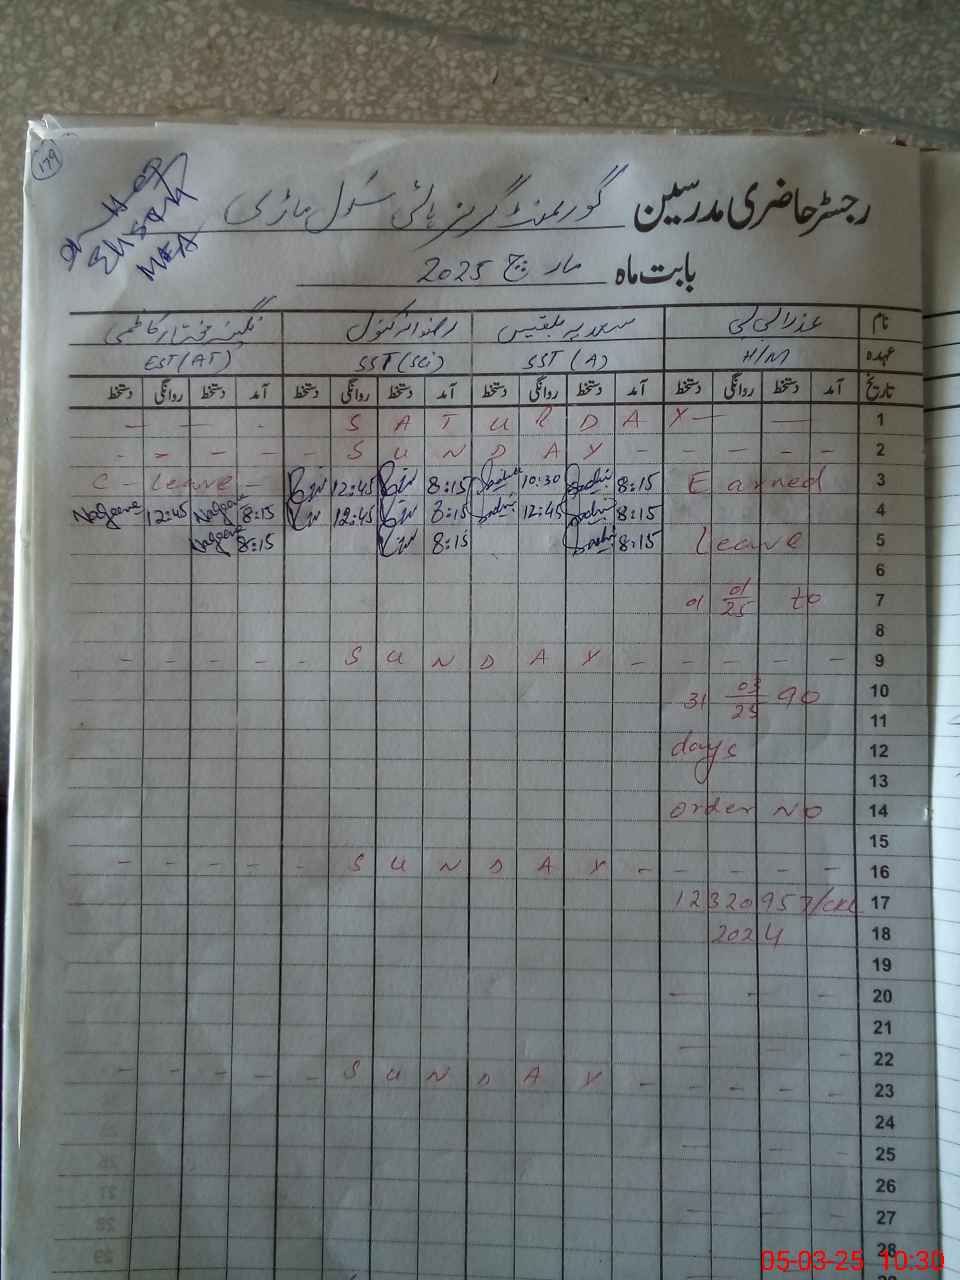 179
Ehsan
MEA
رجسٹر حاضری مدرسین گورنمنٹ گرلز ہائی سکول ماڑی
بابت ماہ مارچ 2025
نام عذرا بی بی سعدیہ بلقیس رضوانہ کنول نگینہ مختار کاظمی
عہدہ H/M SST (A) SST (Sci) EST (AT)
تاریخ آمد دستخط روانگی دستخط آمد دستخط روانگی دستخط آمد دستخط روانگی دستخط آمد دستخط روانگی دستخط
- - - S A T U R D A Y - - 1
- - - - - S U N D A Y - - - - - 2
C - leave - 12:45 8:15 10:30 8:15 Earned 3
Nageena 12:45 Nageena 8:15 12:45 8:15 12:45 8:15 4
Nageena 8:15 8:15 8:15 leave 5
6
01 01/25 to 7
8
- - - - - S U N D A Y - - - - - 9
31 03/25 90 10
11
days 12
13
order NO 14
15
- - - - - S U N D A Y - - - - - 16
12320957/CKL 17
2024 18
19
- - - 20
21
- - - 22
- - - - - S U N D A Y - - - - - 23
24
- - - 25
26
- - - 27
28
05-03-25 10:30